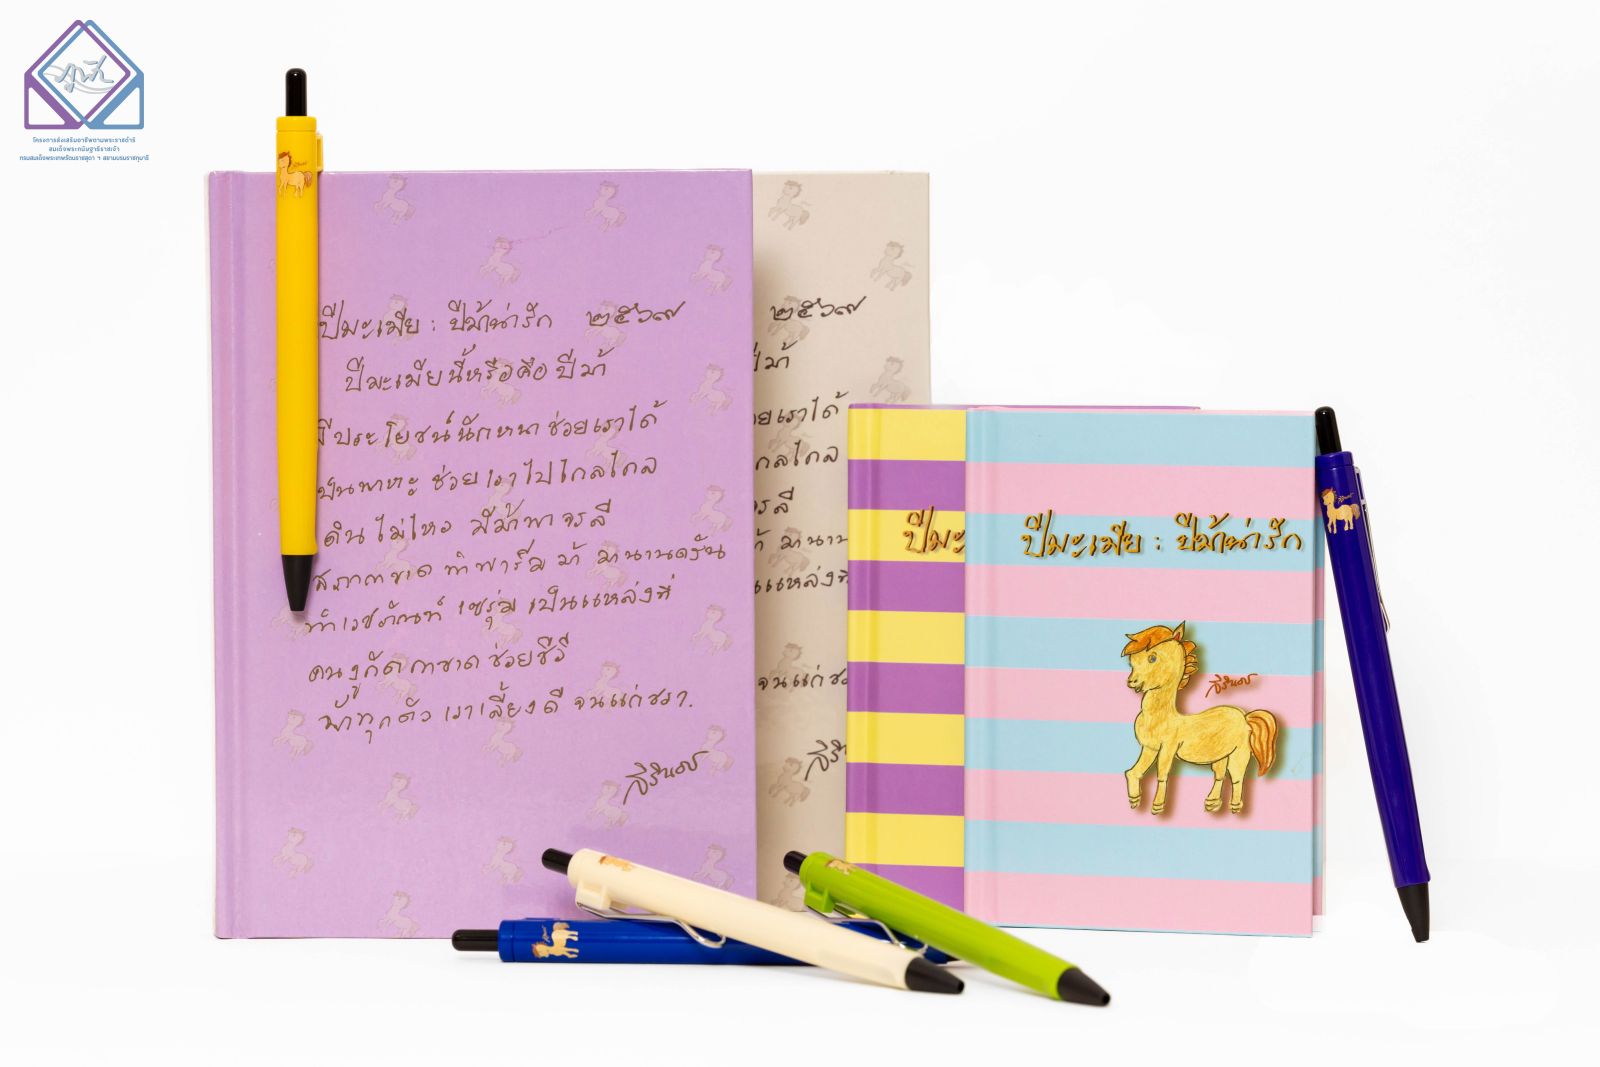 ภูฟ้า
โครงการส่งเสริมอาชีพตามพระราชดำริ
สมเด็จพระกนิษฐาธิราชเจ้า
กรมสมเด็จพระเทพรัตนราชสุดา ฯ สยามบรมราชกุมารี
ปีมะเมีย : ปีม้าน่ารัก ๒๕๖๙
ปีมะเมียนี้หรือคือปีม้า
มีประโยชน์นักหนาช่วยเราได้
เป็นพาหะ ช่วยเราไปไกลไกล
เดินไม่ไหว มีม้าพาจรลี
สภากาชาด ทำฟาร์มม้า มานานครัน
ทำเวชภัณฑ์ เซรุ่ม เป็นแหล่งที่
คนงูกัดกาชาดช่วยชีวี
ม้าทุกตัว เราเลี้ยงดี จนแก่ชรา.
สิรินธร
๒๕๖๙
ปีม้า
วยเราได้
กลไกล
จรลี
ม้า มานาน
แหล่งที่
จนแก่ชร
สิริ
ปีมะ
ปีมะเมีย : ปีม้าน่ารัก
สิรินธร